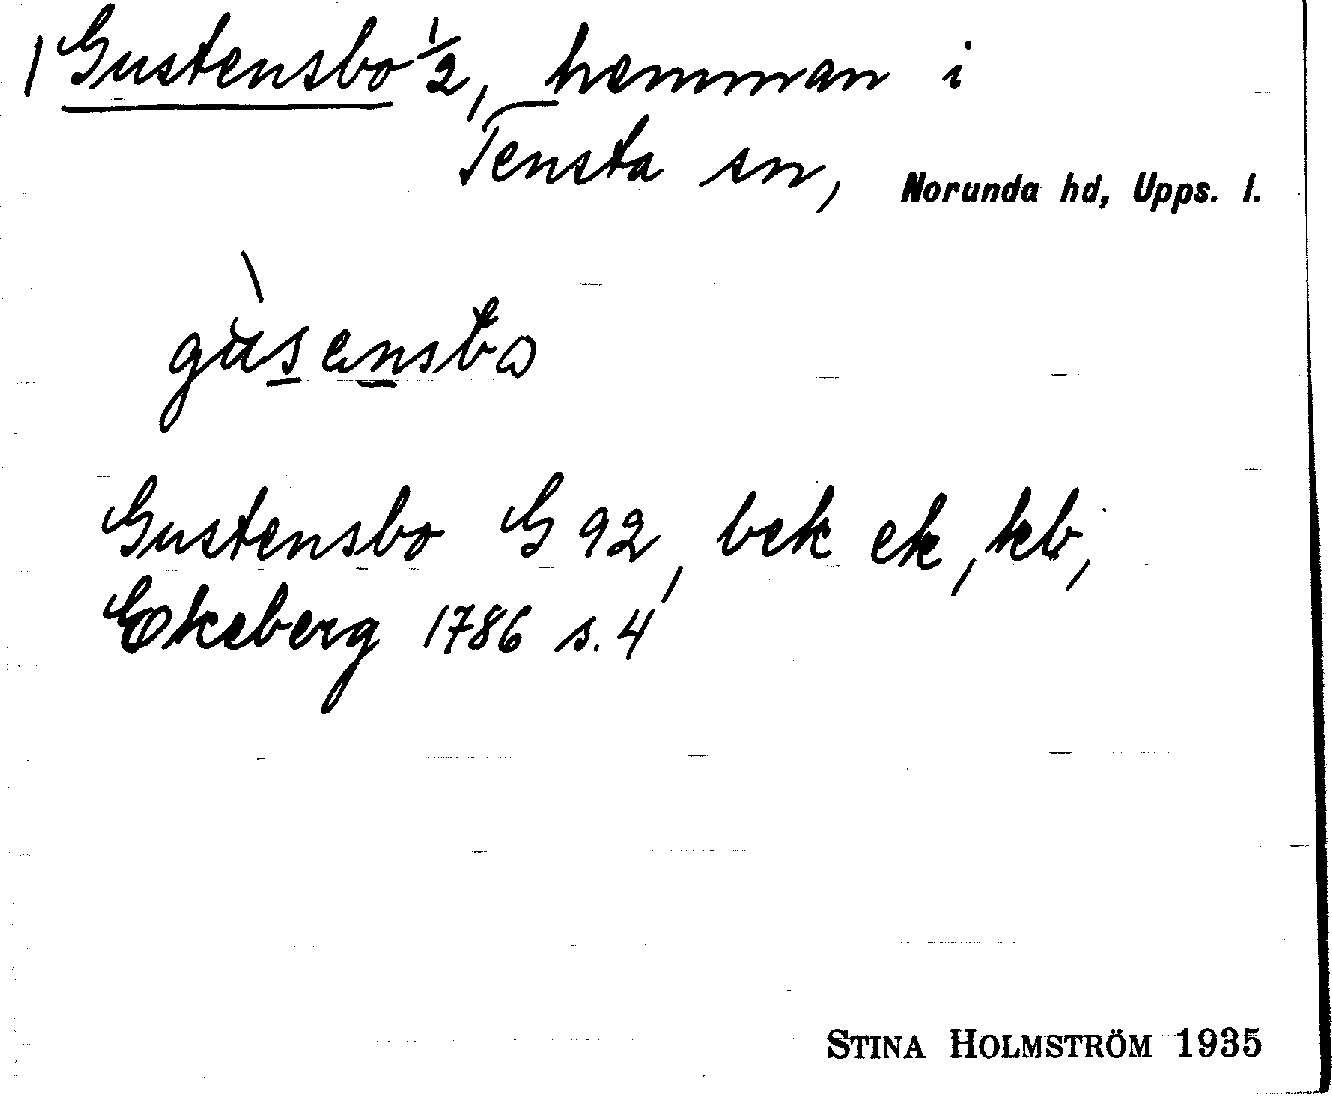 Gustensbo ½, hemman i
Tensta sn, Norunda hd, Upps. l.
gùsensbo
Gustensbo G 92, bek ek, kb,
Ekeberg 1786 s. 4
STINA HOLMSTRÖM 1935